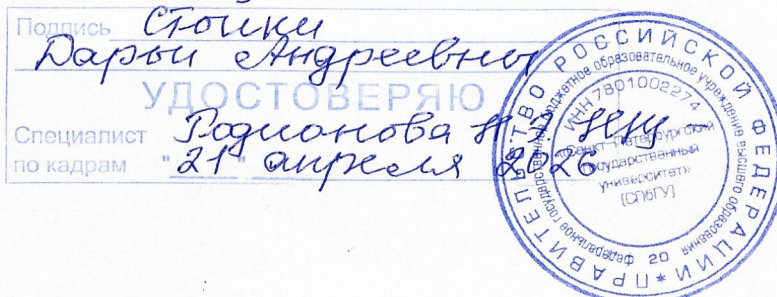 Подпись Стоики
Дарьи Андреевны
УДОСТОВЕРЯЮ
Специалист Родионова Н.
по кадрам "21" апреля 2026
ПРАВИТЕЛЬСТВО РОССИЙСКОЙ ФЕДЕРАЦИИ *
федеральное государственное бюджетное образовательное учреждение высшего образования
ИНН 7801002274
«Санкт-Петербургский
государственный
университет»
(СПбГУ)
20